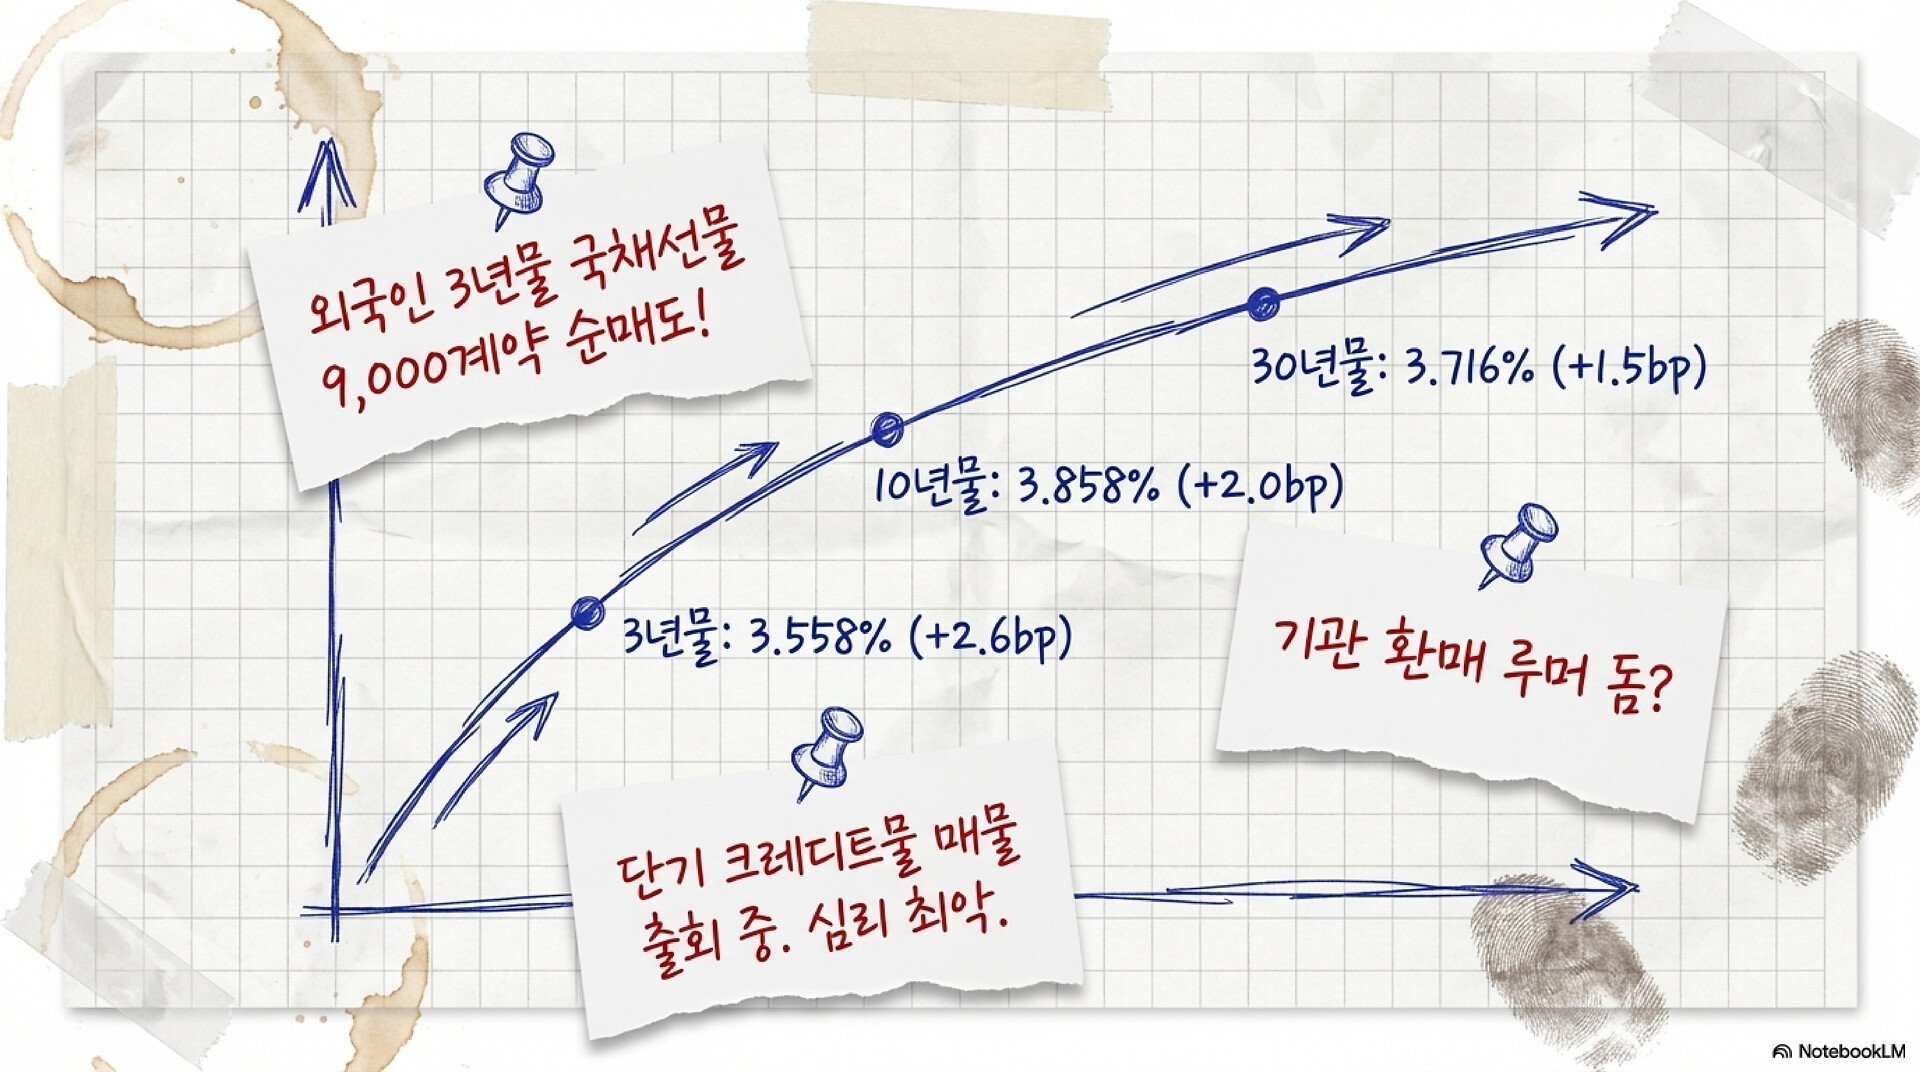 외국인 3년물 국채선물
9,000계약 순매도!
30년물: 3.716% (+1.5bp)
10년물: 3.858% (+2.0bp)
3년물: 3.558% (+2.6bp)
기관 환매 루머 돔?
단기 크레디트물 매물
출회 중. 심리 최악.
NotebookLM